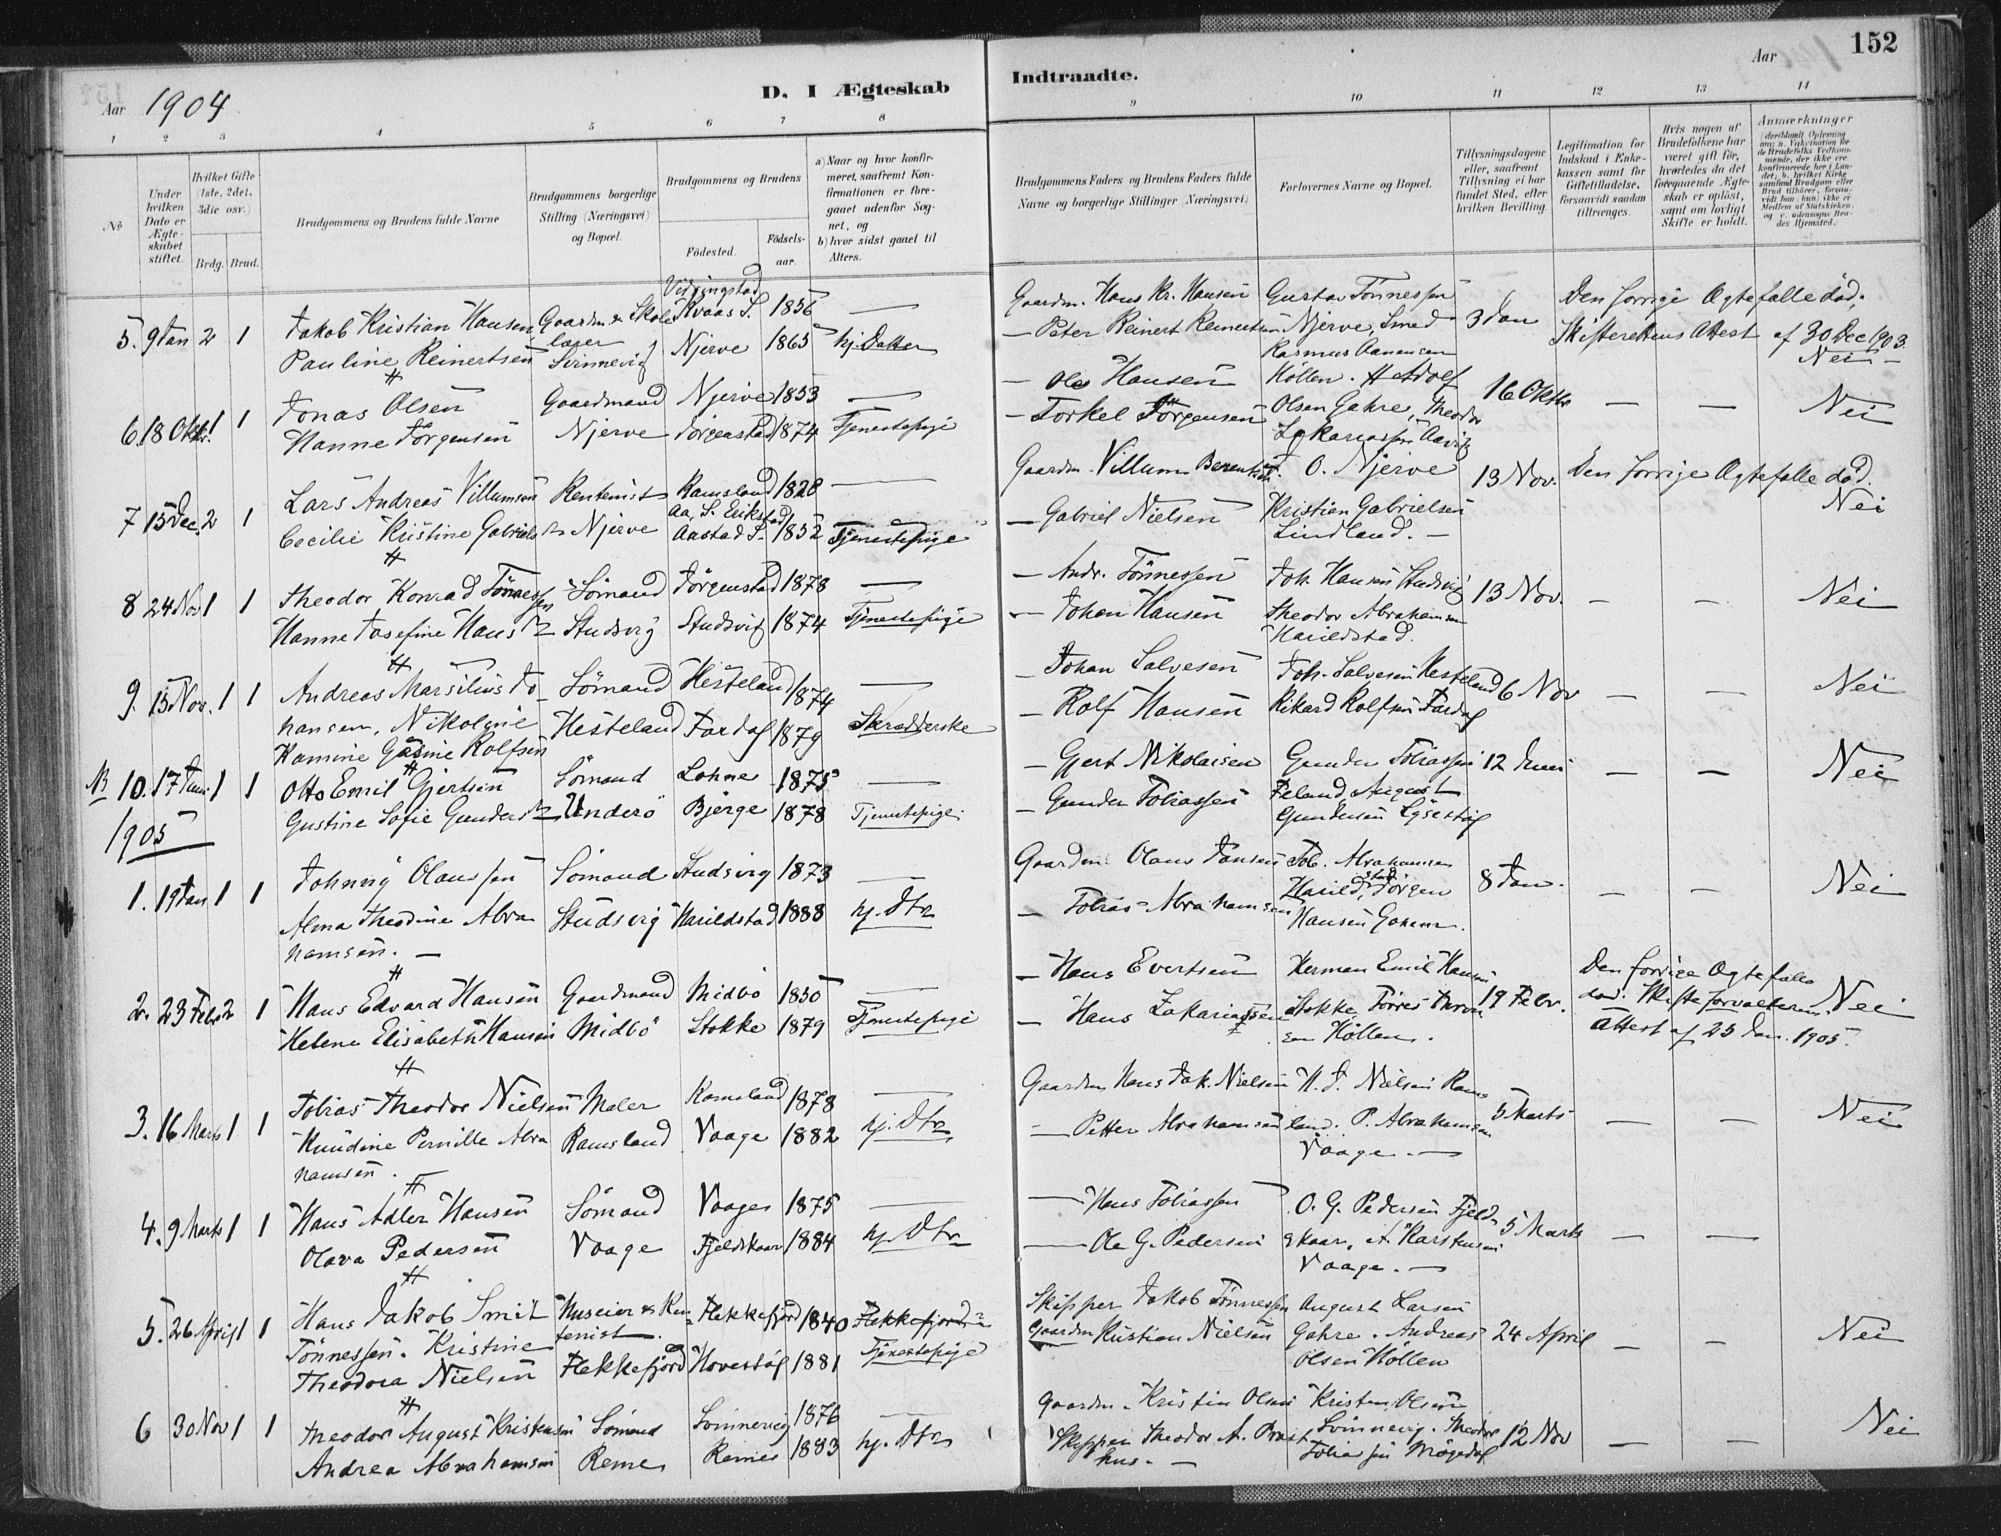 Aar 1904
D. I Ægteskab
Indtraadte.
Aar
152
1 2 3 4 5 6 7 8 9 10 11 12 13 14
№
Under hvilken Dato er Ægteskabet stiftet.
Hvilket Gifte (1ste, 2det, 3die osv.)
Brdg. Brud.
Brudgommens og Brudens fulde Navne
Brudgommens borgerlige Stilling (Næringsvei) og Bopæl.
Brudgommens og Brudens
Födested.
Födsels-aar.
a) Naar og hvor konfirmeret, saafremt Konfirmationen er foregaaet udenfor Sognet, og
b) hvor sidst gaaet til Alters.
Brudgommens Faders og Brudens Faders fulde Navne og borgerlige Stillinger (Næringsvei)
Forlovernes Navne og Bopæl.
Tillysningsdagene eller, saafremt Tillysning ei har fundet Sted, efter hvilken Bevilling.
Legitimation for Indskud i Enkekassen samt for Giftetilladelse, forsaavidt saadan tiltrænges.
Hvis nogen af Brudefolkene har været gift för, hvorledes da det foregaaende Ægteskab er oplöst, samt om lovligt Skifte er holdt.
Anmærkninger
5. 9 Jan 2 1 Jakob Kristian Hansen Gaardm. & Skole Kvaas S. 1856 — Gaardm. Hans Kr. Hansen Gustav Tönnessen 3 Jan Den forrige Ægtefælle död.
Pauline Reinertsen Svinnevig Njerve 1865 hj. Datter — Peter Reinert Reinertsen Njerve, Smed Skifterettens Attest af 30 Dec 1903.
Rasmus Aanensen Nei —
6. 18 Oktbr. 1 1 Jonas Olsen Gaardmand Njerve 1853 — — Ole Hansen Höllen. Adolf 16 Oktbr — — Nei
Hanne Jörgensen Njerve Jörgenstad 1874 Tjenestepige — Torkel Jörgensen Olsen Gahre, Theodor
7 15 Dec. 2 1 Lars Andreas Villumsen Rentenist Ramsland 1828 — Gaardm. Villum Berentsen. O. Njerve 13 Nov. Den forrige Ægtefælle död.
Cecilie Kristine Gabriels Dtr Njerve Aastad S. 1852 Tjenestepige — Gabriel Nielsen Kristian Gabrielsen Nei
Lindland. —
8 24 Nov 1 1 Theodor Konrad Tönnessen Sömand Jörgenstad 1878 — — Andr. Tönnessen Joh. Hansen Studsvig 13 Nov. — — Nei
Hanne Josefine Hans Dtr Studsvig Studsvig 1874 Tjenestepige — Johan Hansen Theodor Abrahamsen
Harildstad.
9. 15 Nov. 1 1 Andreas Marsilius Jo- Sömand Hesteland 1874 — — Johan Salvesen Joh. Salvesen Hesteland 6 Nov — — Nei
hansen, Nikoline Hesteland Fardal 1879 Skrædderske — Rolf Hansen Rikard Rolfsen Fardal
Hamine Gusine Rolfsen
10. 17 Juni 1 1 Otto Emil Gjertsen Sömand Lohne 1875 — — Gjert Nikolaisen Gunder Tobiassen 12 Juni — — Nei
Gustine Sofie Gunders Dtr Underö Bjerge 1878 Tjenestepige. — Gunder Tobiassen August
1905
1. 19 Jan 1 1 Johnny Olaussen Sömand Studsvig 1873 — Gaardm. Olaus Jansen Tob. Abrahamsen 8 Jan. — — Nei
Alma Theodine Abra Studsvig Harildstad 1888 hj. Dtr — Tobias Abrahamsen Harildstad, Jörgen
hamsen. — Hansen Gahre.
2. 23 Febr 2 1 Hans Edvard Hansen Gaardmand Midbö 1850 — — Hans Evertsen Herman Emil Hansen 19 Febr. Den forrige Ægtefælle Nei
Helene Elisabeth Hansen Midbö Stokke 1879 Tjenestepige — Hans Zakariassen Stokke, död. Skifteforvalterens
Höllen. Attest af 23 Jan. 1905.
3. 16 Marts 1 1 Tobias Theodor Nielsen Maler Ramsland 1878 — Gaardm Hans Jak. Nielsen H. J. Nielsen Rams 5 Marts — — Nei
Knudine Pernille Abra Ramsland Vaage 1882 hj. Dtr — Petter Abrahamsen land. P. Abrahamsen
hamsen. Vaage. —
4. 9 Marts 1 1 Hans Adler Hansen Sömand Vaage 1875 — — Hans Tobiassen O. G. Pedersen Fjeld- 5 Marts — —
Olava Pedersen Vaage Fjeldskaar 1884 hj. Dtr — Ole G. Pedersen skaar, A. Karstensen
Vaage. —
5. 26 April 1 1 Hans Jakob Smit Huseier & Ren Flekkefjord 1840 Flekkefjord Skipper Jakob Tönnessen August Larsen
Tönnessen. Kristine tenist. Gaardm Kristian Nielsen Gahre. Andreas 24 April — — Nei
Theodora Nielsen Flekkefjord Hovestöl 1881 Tjenestepige Olsen Höllen
6 30 Nov 1 1 Theodor August Kristensen Sömand Svinnevig 1876 — Gaardm. Kristen Olsen Kristen Olsen
Andrea Abrahamsen Reme Remes 1883 hj. Dtr Skipper Theodor A. Svinnevig. Theodor 12 Nov — — Nei
hus. — Tobiassen